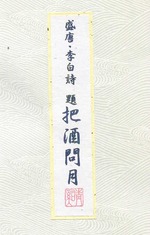 盛唐·李白詩 題 把酒問月